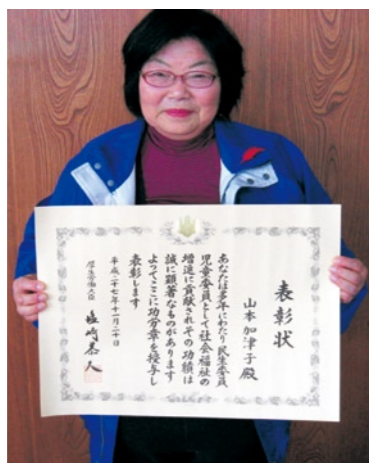 表彰状
山本加津子殿
あなたは多年にわたり民生委員
児童委員として社会福祉の
増進に貢献されその功績は
誠に顕著なものがあります
よってここに功労章を授与し
表彰します
平成二十七年十一月二十日
厚生労働大臣 塩崎恭久